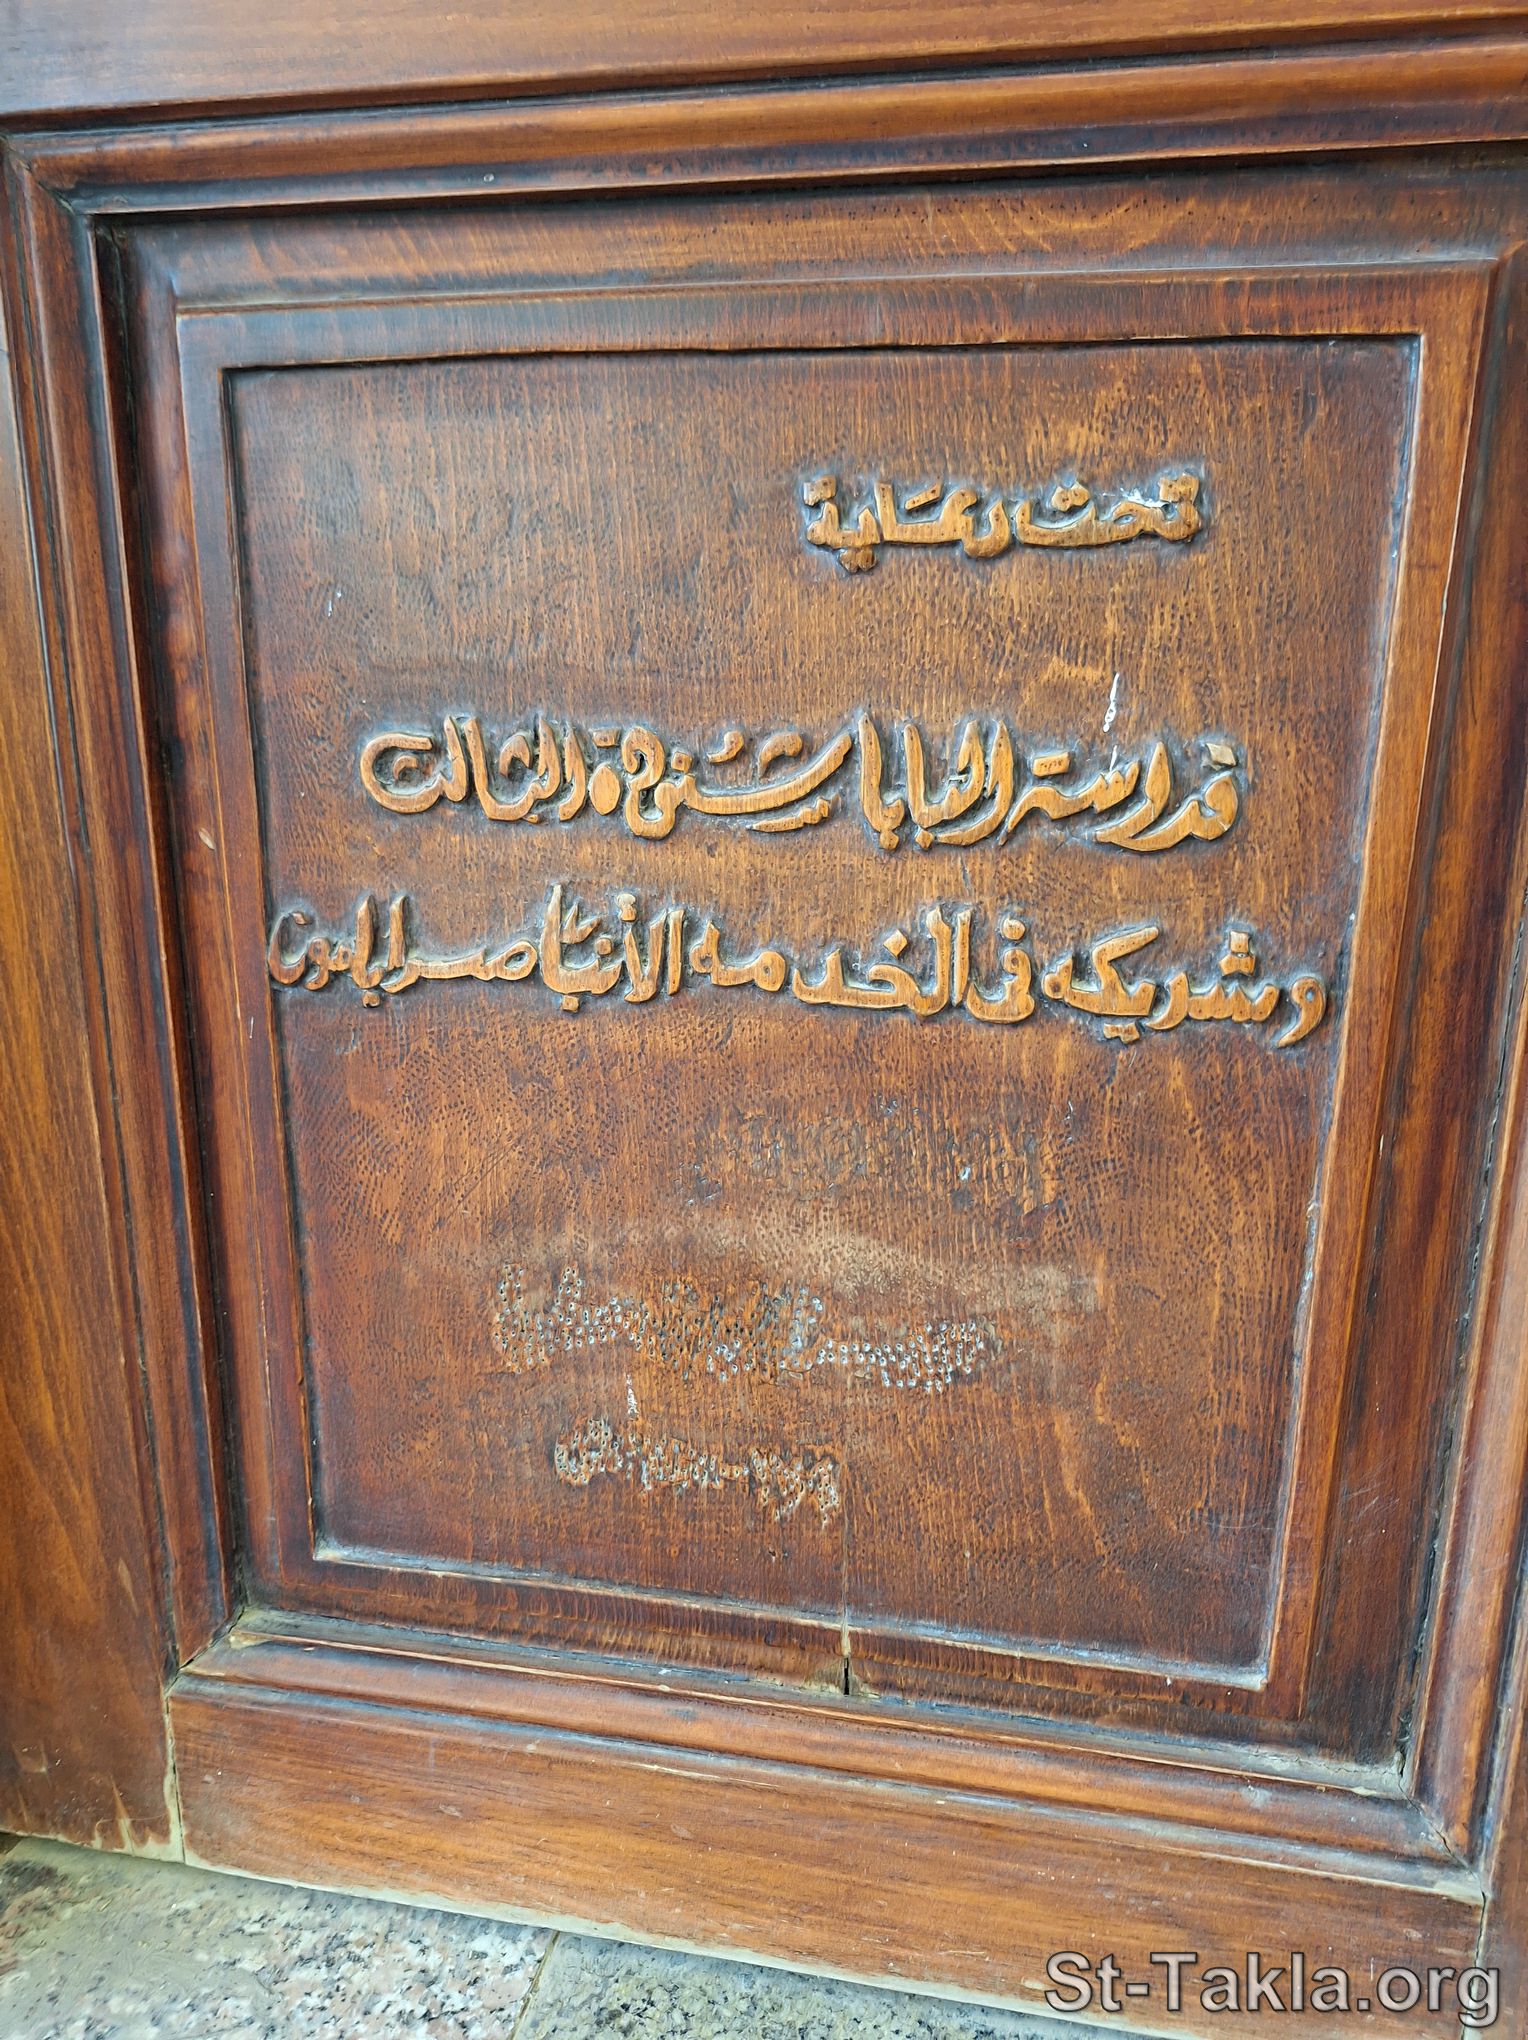 تحت رعاية
قداسة البابا شنودة الثالث
وشريكه فى الخدمه الأنبا صرابامون
St-Takla.org